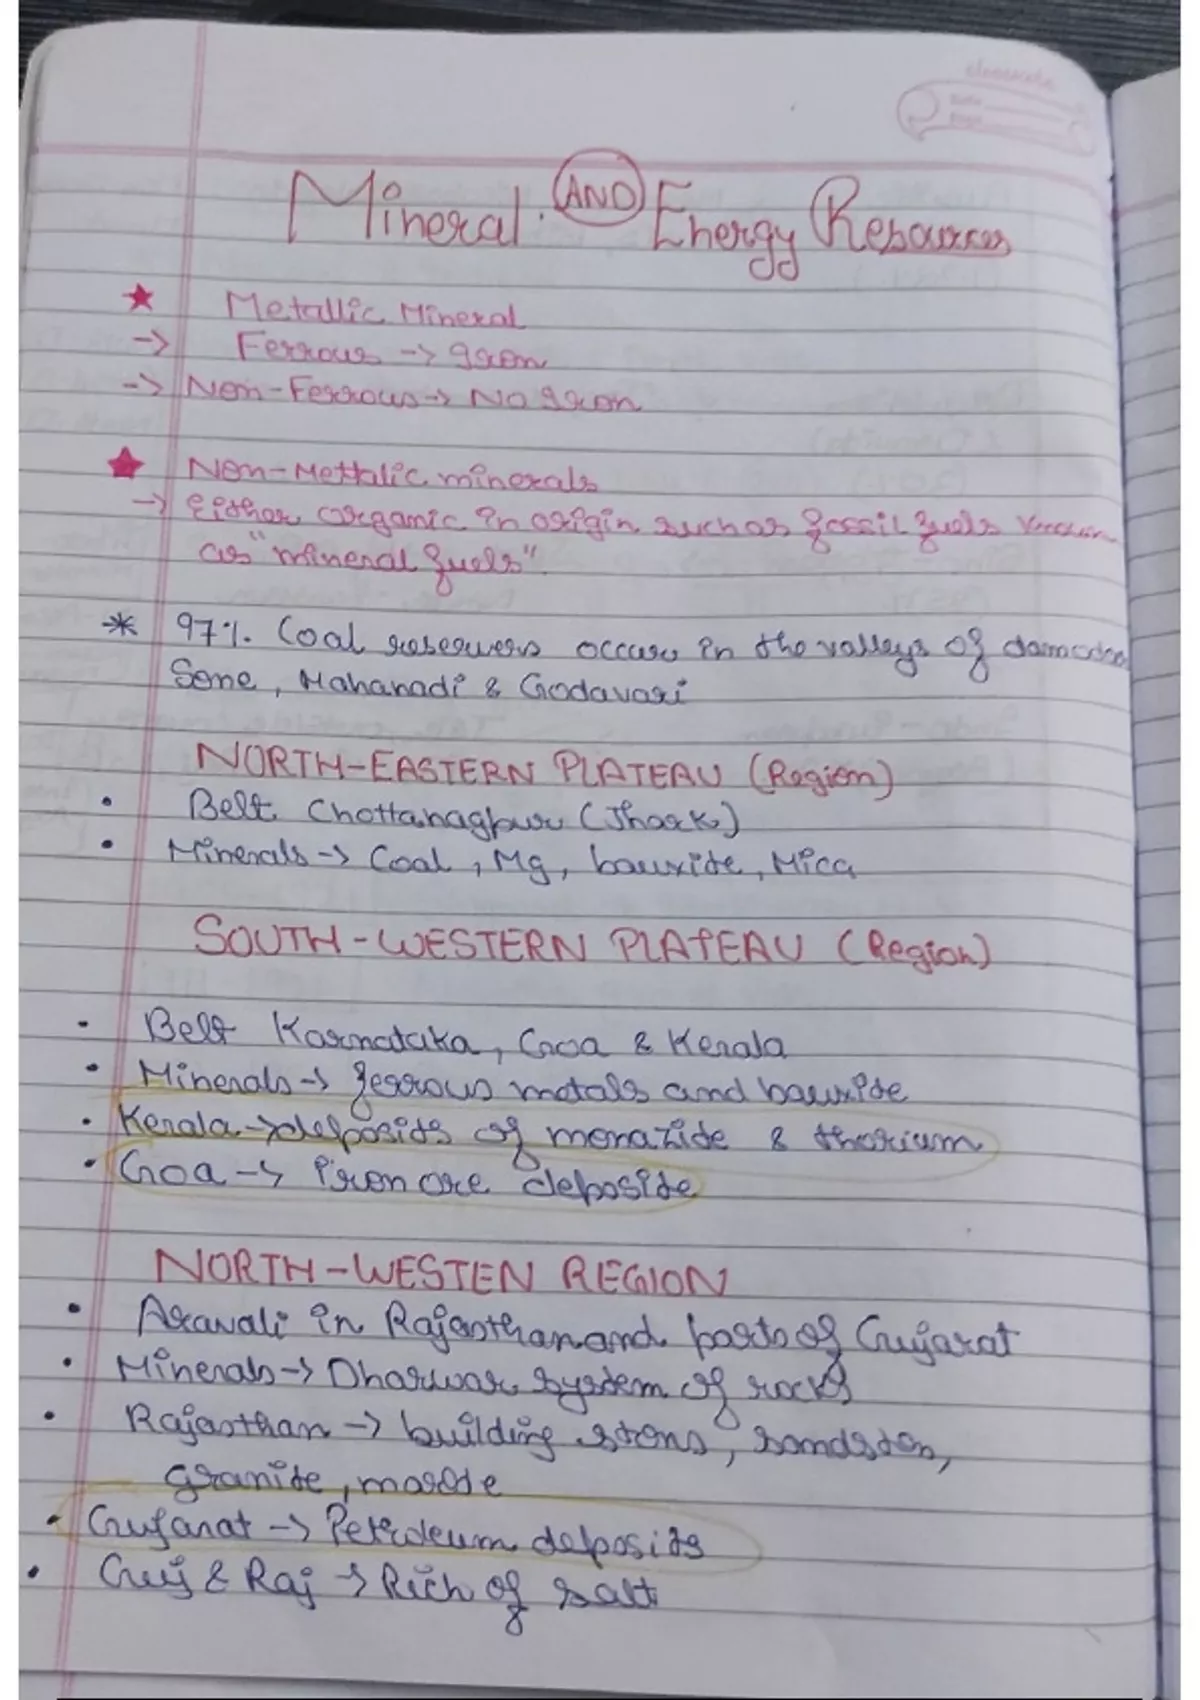 classmate
Date
Page
Mineral AND Energy Resources
★ Metallic Mineral
-> Ferrous -> Iron
-> Non-Ferrous -> No Iron
★ Non-Mettalic minerals
-> Either organic in origin such as fossil fuels known
as "mineral fuels".
* 97% Coal reserves occurs in the valleys of damodar
Sone, Mahanadi & Godavari
NORTH-EASTERN PLATEAU (Region)
• Belt Chottanagpur (Jhark)
• Minerals -> Coal, Mg, bauxite, Mica
SOUTH-WESTERN PLATEAU (Region)
• Belt Karnataka, Goa & Kerala
• Minerals -> ferrous metals and bauxite
• Kerala -> deposits of monazide & thorium
• Goa -> Iron ore deposide
NORTH-WESTEN REGION
• Aravali in Rajasthan and parts of Gujarat
• Minerals -> Dharwar system of rocks
• Rajasthan -> building stons, sandston,
granite, marble
• Gujarat -> Petroleum deposits
• Guj & Raj -> Rich of salt